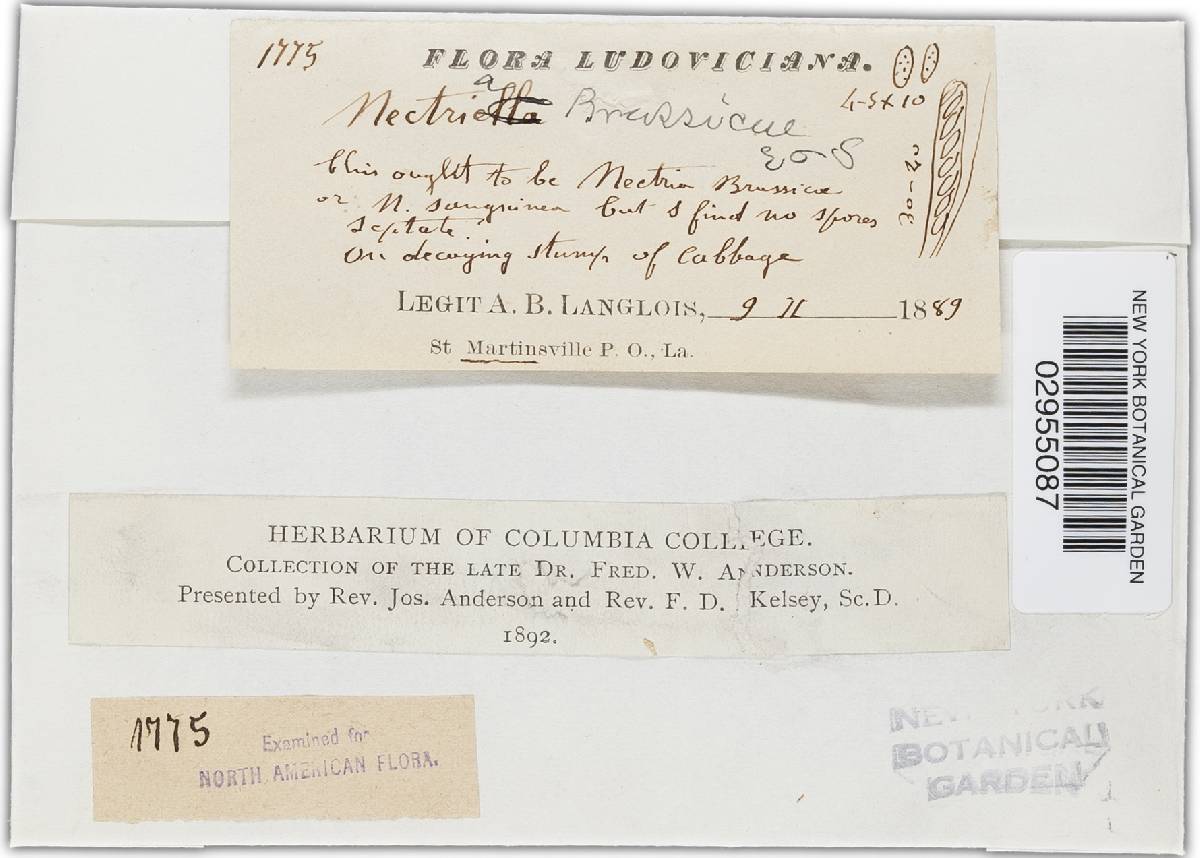 1775
FLORA LUDOVICIANA.
Nectria Brassicae
E & S
4-5 x 10
30-2
This ought to be Nectria Brassicae
or N. sanguinea but I find no spores
septate.
On decaying stump of Cabbage
LEGIT A. B. LANGLOIS, 9 II 1889
St Martinsville P. O., La.
NEW YORK BOTANICAL GARDEN
02955087
HERBARIUM OF COLUMBIA COLLEGE.
COLLECTION OF THE LATE DR. FRED. W. ANDERSON.
Presented by Rev. Jos. Anderson and Rev. F. D. Kelsey, Sc.D.
1892.
1775
Examined for
NORTH AMERICAN FLORA.
NEW YORK
BOTANICAL
GARDEN